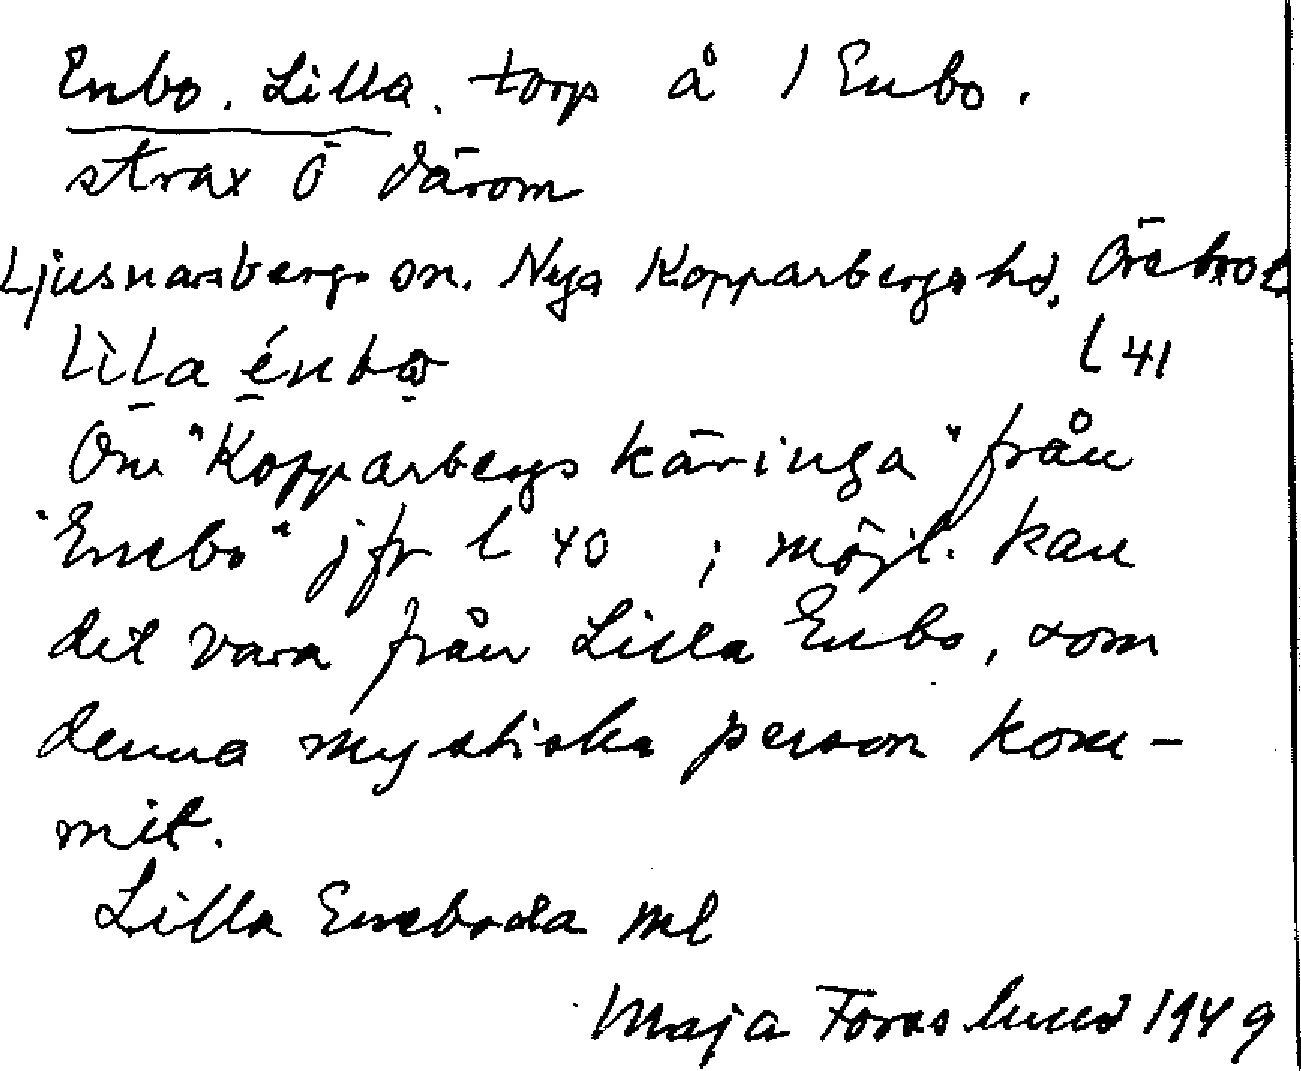 Enbo. Lilla. torp å 1 Enbo.
strax Ö därom
Ljusnarsbergs sn. Nya Kopparbergs hd. Örebro l.
lìla énbo
l 41
Om "Kopparbergs käringa" från
"Enebo" jfr l 40 ; möjl. kan
det vara från Lilla Enbo, som
denna mystiska person kom-
mit.
Lilla Eneboda ml
Maja Forsslund 1949